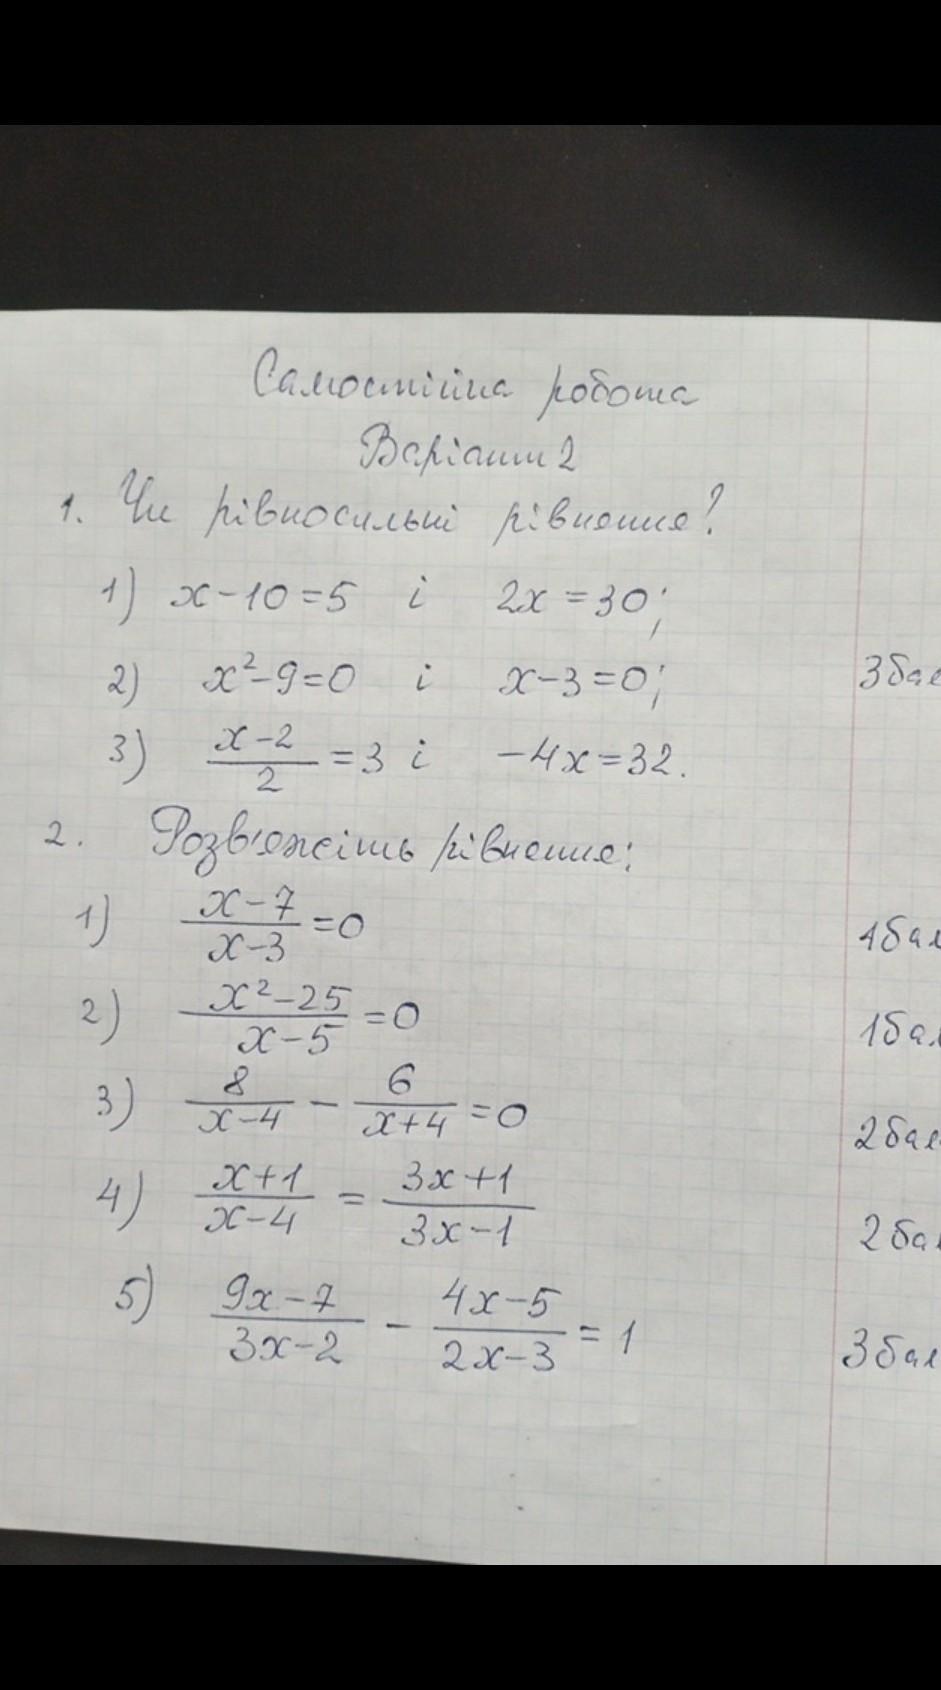 Самостійна робота
Варіант 2
1. Чи рівносильні рівняння?
1) x-10=5 і 2x=30;
2) x²-9=0 і x-3=0; 3 бал
3) (x-2)/2=3 і -4x=32.
2. Розв'яжіть рівняння:
1) (x-7)/(x-3)=0 1 бал
2) (x²-25)/(x-5)=0 1 бал
3) 8/(x-4) - 6/(x+4)=0 2 бал
4) (x+1)/(x-4) = (3x+1)/(3x-1) 2 бал
5) (9x-7)/(3x-2) - (4x-5)/(2x-3)=1 3 бал